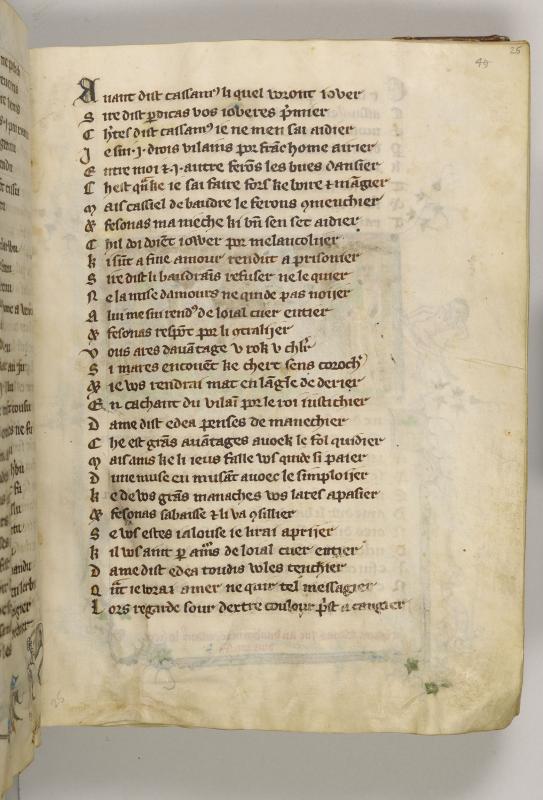 25
49
Auant dist cassamꝰ li quel vront iover
Sire dist pdicas vos ioueres pmier
Chtes dist cassamꝰ ie ne men sai aidier
Ie sui ·i· drois vilains por frāche airier
Entre moi ⁊ ·i· autre ferōs les bues dansier
Chest qāke ie sai faire fors ke boire ⁊ māgier
Mais cassiel de baudre le ferons ꝯmenchier
⁊ fesonas ma nieche ki bn̄ sen set aidier
Chil doi doiēt iower por melancolijer
ki sūt a fine amour rendut a prisonier
Sire dist li baudrains refuser ne le quier
Ne la mise damours ne quide pas noijer
A lui me sui rendꝰ de loial cuer entier
⁊ fesonas respōt por li ꝯtralijer
Vous ares dauātage v rok v chlr
Si mares encouēt ke chert sens coroch
⁊ ie vos rendrai mat en lāgle de derier
En cachant du vilaī por le roi iustichier
Dame dist edea penses de manechier
Che est grās auātages auoek le fol quidier
Mais ains ke li ieus falle vos quide si paier
Dune muse en musāt auoec le simploijer
ke de vos grās manaches vos lares apasier
⁊ fesonas sabaisse ⁊ li va ꝯsillier
Se vos estes ialouse ie lirai aprijer
kil vos aint p amors de loial cuer entier
Dame dist edea toudis voles tenchier
Qāt ie vorai amer ne quir tel messagier
Lors regarde sour dextre coulour pst a cangier
25